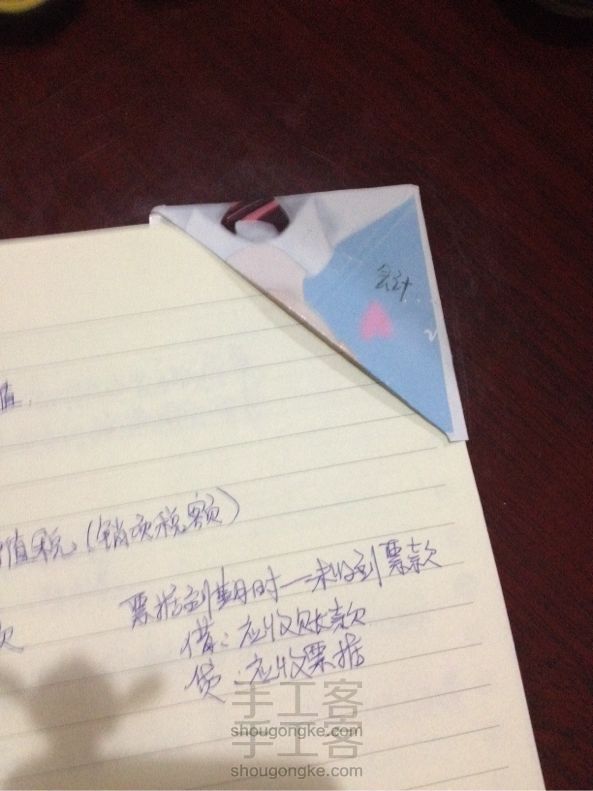 会计
值.
值税(销项税额)
票据到期时——未收到票款
借:应收账款
贷:应收票据
手工客
shougongke.com
手工客
shougongke.com